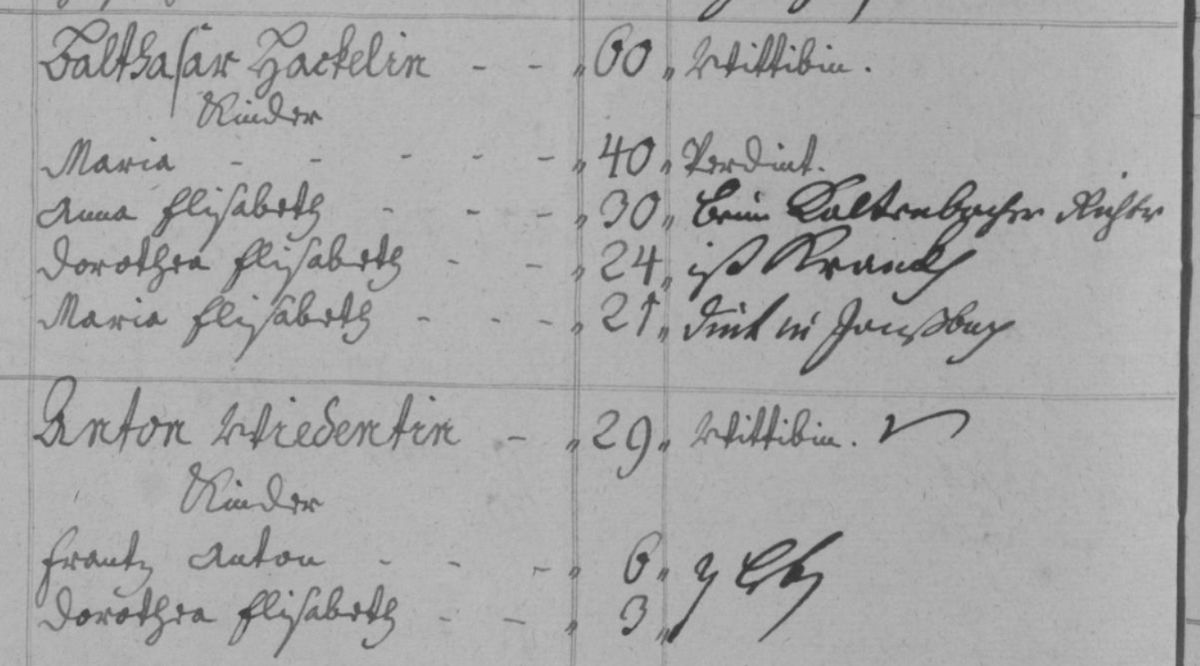 Balthasar Hackelin - - " 60 " Wittibin.
Kinder
Maria - - - - - " 40 " Verdint.
Anna Elisabeth - - - " 30 " beim Kaltenbacher Richter
Dorothea Elisabeth - - " 24 " ist Kranck
Maria Elisabeth - - - " 21 " dint in
Anton Wiedentin - " 29 " Wittibin.
Kinder
Frantz Anton - - - " 6 "
Dorothea Elisabeth - - " 3 "